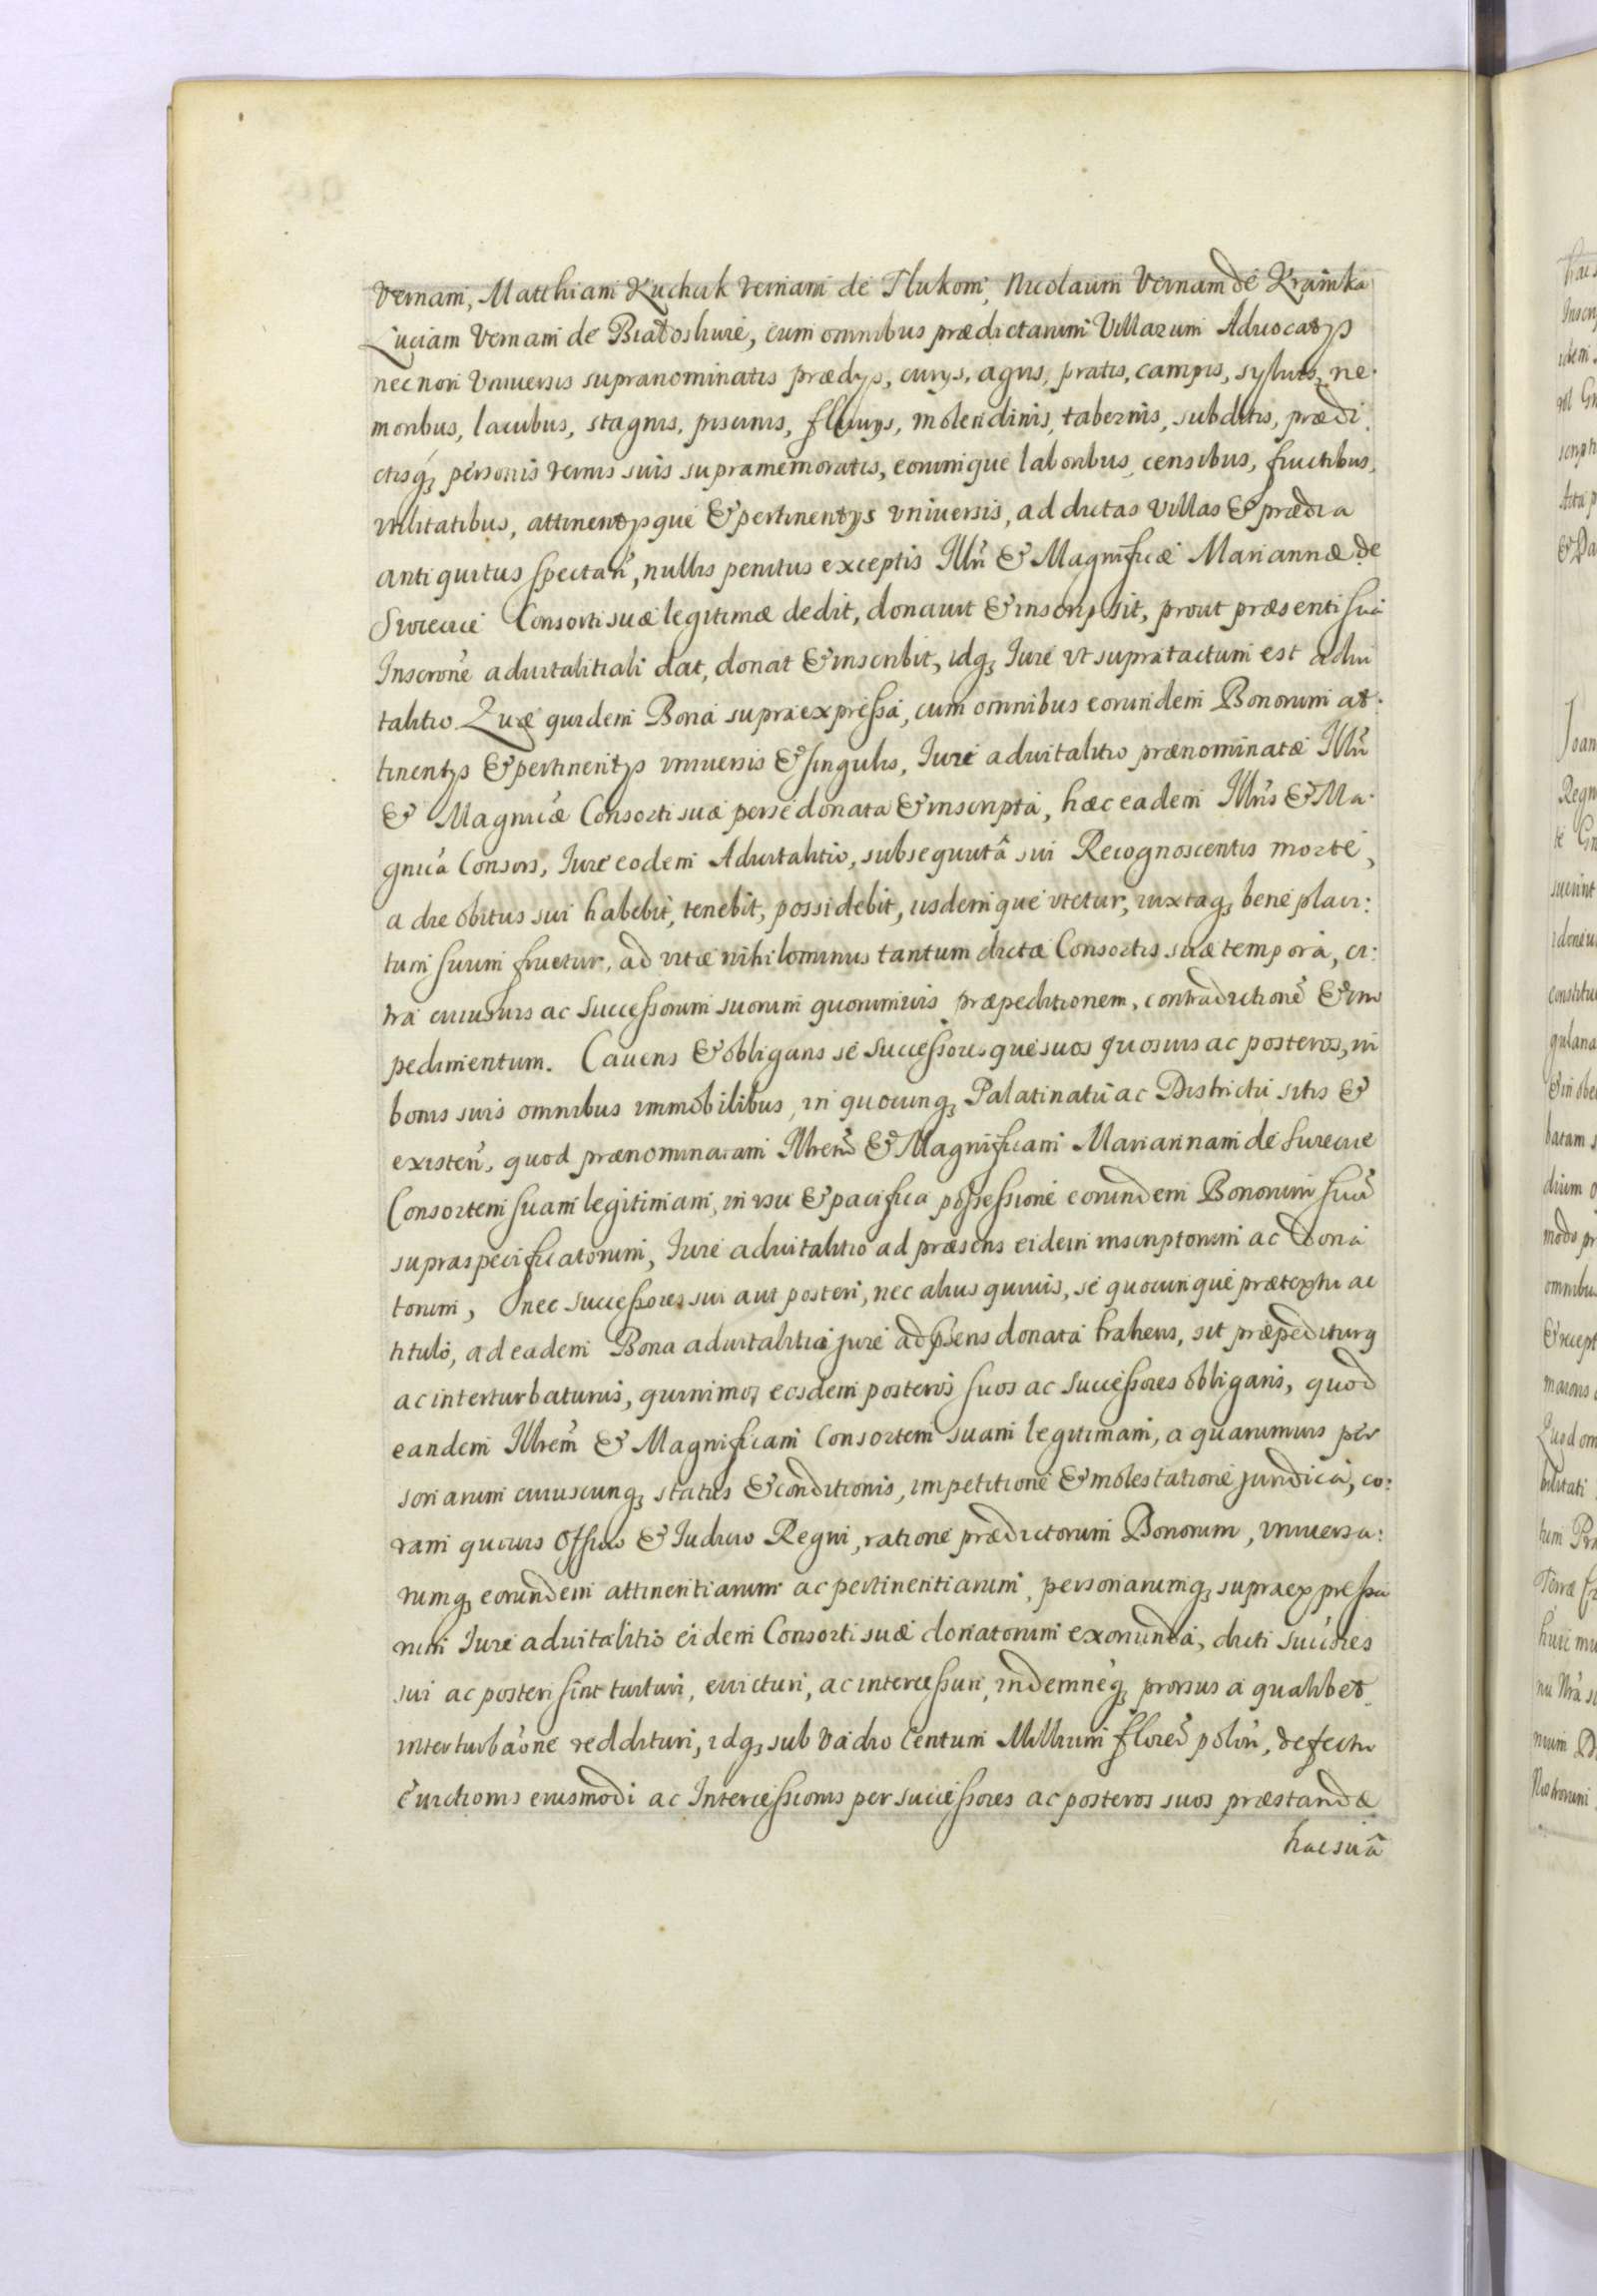 Vernam, Matthiam Kuchak vernam de Tlukom, Nicolaum Vernam de Krainka
Luciam Vernam de Białoshiwe, cum omnibus prædictarum Villarum Aduocatijs
necnon Vniuersis supranominatis prædijs, curijs, agris, pratis, campis, syluis, ne-
moribus, lacubus, stagnis, piscinis, fluuijs, molendinis, tabernis, subditis, prædi
ctisq3 personis vernis suis supramemoratis, eorumque laboribus, censibus, fructibus,
vtilitatibus, attinentijsque & pertinentijs vniuersis, ad dictas Villas & prædia
antiquitus spectañ, nullis penitus exceptis Illri & Magnificæ Mariannæ de
Consorti suæ legitimæ dedit, donauit & inscripsit, prout præsenti suâ
Inscrõne aduitalitiali dat, donat & inscribit, idq3 Iure vt supra tactum est adui
talitio. Quæ quidem Bona supraexpressa, cum omnibus eorundem Bonorum at-
tinentijs & pertinentijs vniuersis & singulis, Iure aduitalitio prænominatæ Illri
& Magnicæ Consorti suæ per se donata & inscripta, hæc eadem Illris & Ma-
gnica Consors, Iure eodem Aduitalitio, subsequutâ sui Recognoscentis morte,
a die obitus sui habebit, tenebit, possidebit, iisdemque vtetur, iuxtaq3 bene placi:
tum suum fruetur, ad vitæ nihilominus tantum dictæ Consortis suæ tempora, ci:
tra cuiusuis ac successorum suorum quorumuis præpeditionem, contradictionẽ & im
pedimentum. Cauens & obligans se successoresque suos quosuis ac posteros, in
bonis suis omnibus immobilibus, in quocunq3 Palatinatu ac Districtu sitis &
existeñ, quod prænominatam Illrem & Magnificam Mariannam de
Consortem suam legitimam, in vsu & pacifica possessione eorundem Bonorum suõ
supraspecificatorum, Iure aduitalitio ad præsens eidem inscriptorum ac dona
torum, nec successores sui aut posteri, nec alius quiuis, se quocunque prætextu ac
titulo, ad eadem Bona aduitalitio jure ad pñens donata trahens, sit præpediturq
ac interturbaturus, quinimo eosdem posteros suos ac successores obligans, quod
eandem Illrem & Magnificam Consortem suam legitimam, a quarumuis per
sonarum cuiuscunq3 status & conditionis, impetitione & molestatione juridica, co:
ram quouis Officio & Iudicio Regni, ratione prædictorum Bonorum, vniuersa:
rumq3 eorundem attinentiarum ac pertinentiarum, personarumq3 supraexpressa
rum Iure aduitalitio eidem Consorti suæ donatorum exorunda, dicti succsores
sui ac posteri sint tuituri, euicturi, ac intercessuri, indemnẽq3 prorsus a qualibet
interturbãone reddituri, idq3 sub Vadio Centum Millium floreñ poloñ, defectu
Euictionis eiusmodi ac Intercessionis per successores ac posteros suos præstandæ
hac suâ